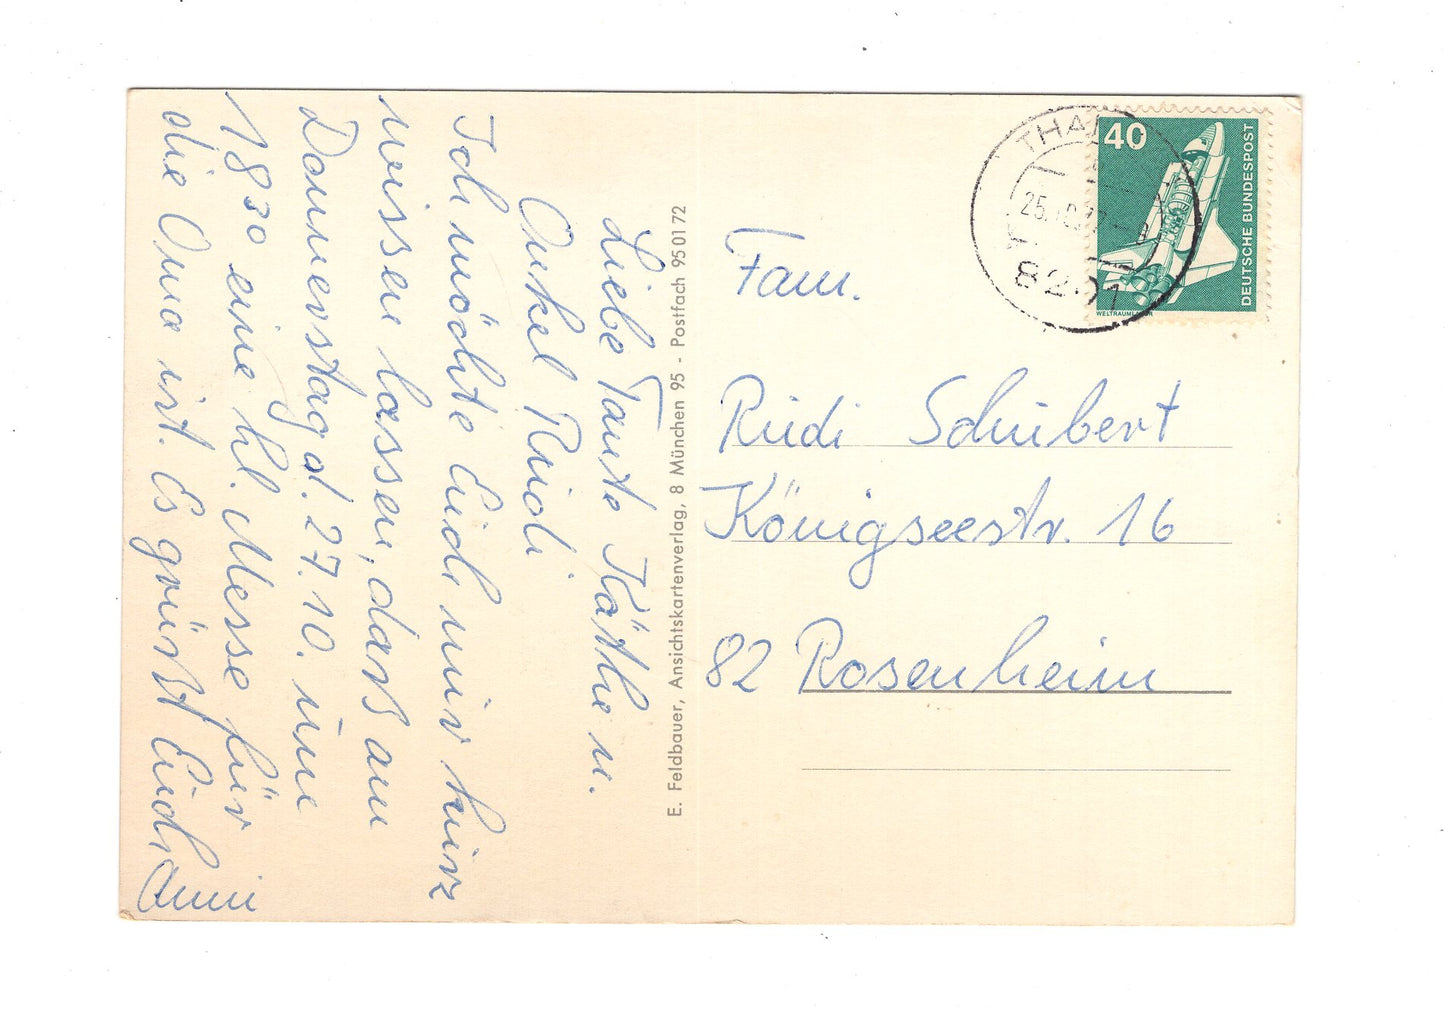 Liebe Tante Käthe u.
Onkel Rudi
Ich möchte Euch nur kurz
wissen lassen, dass am
Donnerstag d. 27.10. um
1830 eine hl. Messe für
die Oma ist. Es grüßt Euch
Anni
E. Feldbauer, Ansichtskartenverlag, 8 München 95 - Postfach 95 01 72
40
DEUTSCHE BUNDESPOST
WELTRAUMLABOR
25.10.77
Fam.
Rudi Schubert
Königseestr. 16
82 Rosenheim